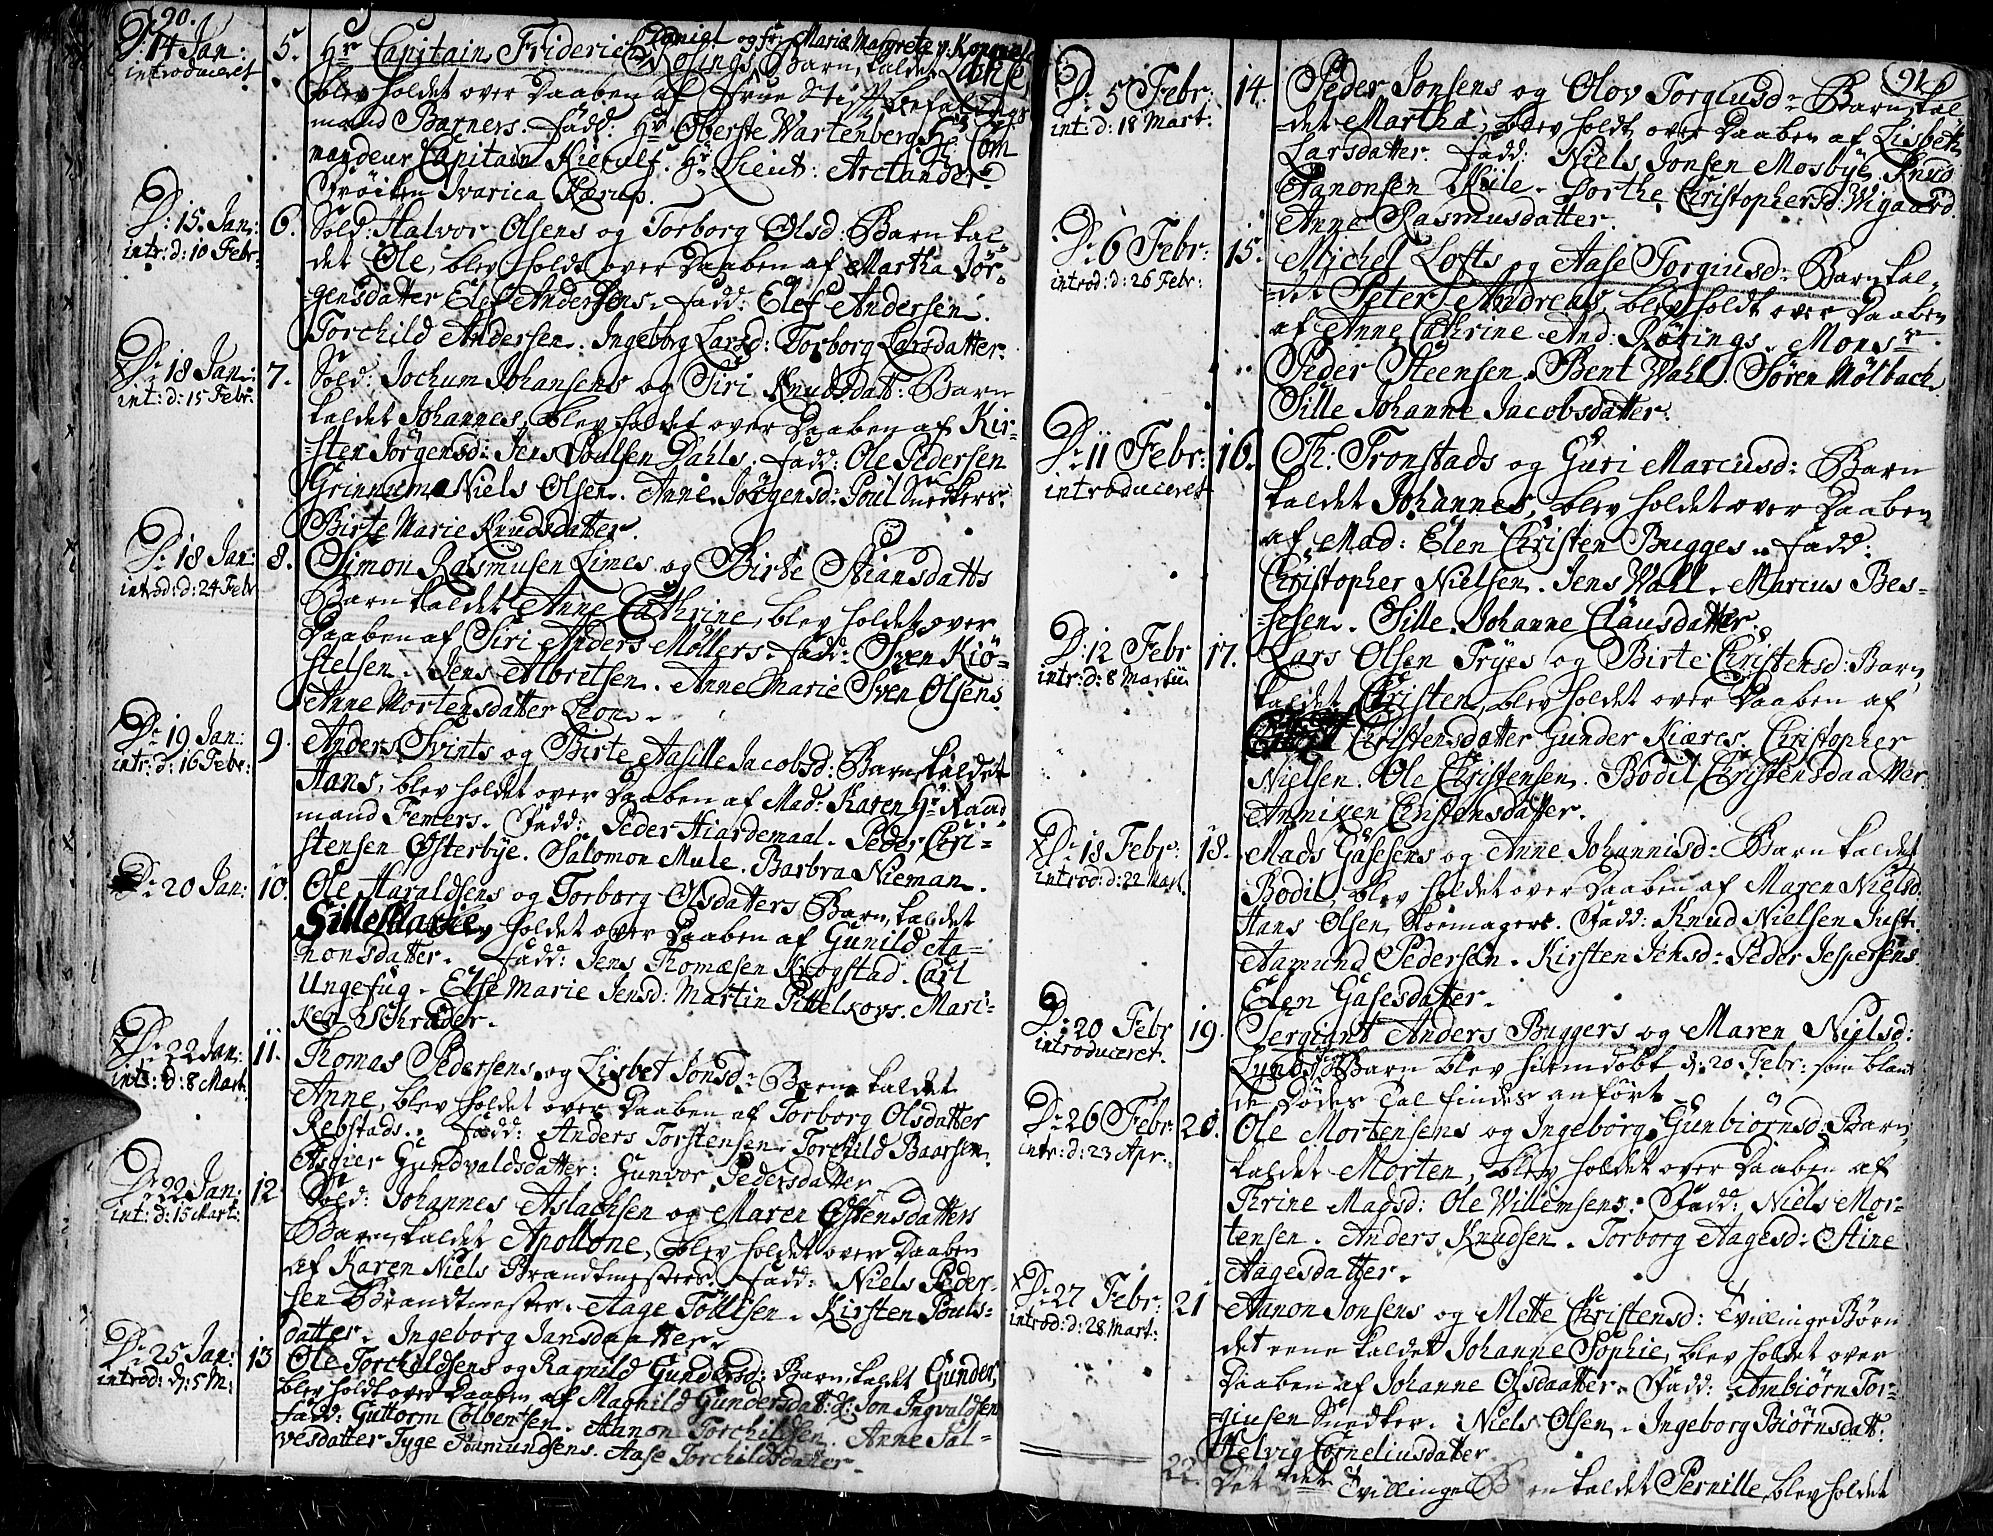 90.
D: 14 Jan: 5. Hr Capitain Friderich Daniel og fr: Maria Margreta v. Koppe
introduceret Rosings Barn, kaldet
blev holdet over Daaben af Frue Stift befal
mand Barners. Fadd: Hr Oberste Wartenberg Hr Com
mandeur Capitain Kierulf. Hr Lieut: Arctander.
Frøiken Ivarica Kærup.
D: 15. Jan: 6. Sold: Halvor Olsens og Torborg Olsd: Barn kal-
intr: d: 10 Febr: det Ole, blev holdt over Daaben af Martha Jør-
gensdatter Elef Andersens. Fadd: Elef Andersen.
Torchild Andersen. Ingeborg Larsd: Torborg Larsdatter.
D: 18 Jan: 7. Sold: Jochum Johansens og Siri Knudsdatt: Barn
int: d: 15 Febr: kaldet Johannes, blev holdet over Daaben af Kir-
sten Jörgensd: Jens Poulsen Dahls. Fadd: Ole Pedersen
Grinnum. Niels Olsen. Anne Jörgensd: Poul Snedkers.
Birte Marie Knudsdatter.
D: 18 Jan: 8. Simon Rasmusen Limes og Birte Stiansdatts
introd: d: 24 Febr Barn kaldet Anne Cathrine, blev holdet over
Daaben af Siri Anders Möllers. Fadd: Sven Kiö-
stelsen. Jens Albretsen. Anne Marie Sven Olsens.
Anne Mortensdatter Leon.
D: 19 Jan: 9. Anders Svints og Birte Aasille Jacobsd: Barn kaldet
intr: d: 16 Febr: Hans, blev holdet over Daaben af Mad: Karen Hr Raad
mand Femers. Fadd: Peder Hiardemaal. Peder Chri-
stensen Østerbye. Salomon Mule. Barbra Nieman.
D: 20 Jan: 10. Ole Haraldsens og Torborg Olsdatters Barn, kaldet
Sille Marie, blev holdet over Daaben af Gunild Aa-
nonsdatter. Fadd: Jens Thomæsen Krogstad. Carl
Ungefug. Else Marie Jensd: Martin Pittelkovs. Mari-
ken Schrøder.
D: 22 Jan: 11. Thomas Pedersens og Lisbet Jonsd: Barn kaldet
int: d: 8 Mart. Anne, blev holdet over Daaben af Torborg Olsdatter
Rebstads. Fadd: Anders Torstensen. Torchild Baarsen.
Asgier Gundvaldsdatter: Gunvor Pedersdatter
D: 22 Jan: 12. Sold: Johannes Aslachsen og Maren Ostensdatters
int: d: 15 Mart: Barn, kaldet Apollone, blev holdet over Daaben
af Karen Niels Brandtmesters. Fadd: Niels Peder-
sen Brandtmester. Aage Tollesen. Kirsten Pouls-
datter. Ingeborg Jansdaatter.
D: 25 Jan: 13 Ole Torchildsens og Ragnild Gundersd: Barn kaldt Gunder,
introd: d: 5 M: blev holdt over Daaben af Magnild Gundersdatt: Jon Ingvaldsen
Fadd: Guttorm Colbensen. Aanon Torchildsen. Anne Sal-
vesdatter Tyge Aamundsens. Aase Torchildsdatter.
91
D: 5 Febr: 14. Peder Jonsens og Olov Torgiusd: Barn kal-
int: d: 18 Mart: det Martha, blev holdt over Daaben af Lisbeth
Larsdatter. Fadd: Niels Jonsen Mosbye. Knud
Aanonsen Kiile. Dorthe Christophersd: Wigaard.
Anne Rasmusdatter.
D: 6 Febr: 15. Michel Lofts og Aase Torgiusd: Barn kal-
introd: d: 26 Febr: det Peter Andreas, blev holdt over Daaben
af Anne Cathrine And: Rörings. Monsr
Peder Steensen. Bent Wahl. Sören Mölbach.
Sille Johanne Jacobsdatter.
D: 11 Febr: 16. Th: Tronstads og Guri Marcusd: Barn
introduceret kaldet Johannes, blev holdet over Daaben
af Mad: Elen Christen Bugges. Fadd:
Christopher Nielsen. Jens Wall. Marcus Bes-
sesen. Sille Johanne Clausdatter.
D: 12 Febr 17. Lars Olsen Fryes og Birte Christensd: Barn,
intr: d: 8 Martii kaldet Christen, blev holdet over Daaben af
Christensdatter Gunder Kiæres. Christopher
Nielsen. Ole Christensen. Bodil Christensdaatter.
Anniken Christensdatter.
D: 18 Febr: 18. Mads Gasesens og Anne Johannisd: Barn kaldet
introd: d: 22 Mart. Bodil, blev holdet over Daaben af Maren Nielsd:
Hans Olsen Skoemagers. Fadd: Knud Nielsen Just.
Aamund Pedersen. Kirsten Jensd: Peder Jespersens
Elen Gasesdatter.
D: 20 Febr 19. Sergiant Anders Buggers og Maren Nielsd:
introduceret. Lunds Barn blev hiemdöbt d: 20 Febr: som blant
de Dödes Tal findes anfört.
D: 26 Febr: 20. Ole Mortensens og Ingeborg Gunbiörnsd: Barn,
intr: d: 23 Apr. kaldet Morten, blev holdet over Daaben af
Thrine Madsd: Ole Willemsens. Fadd: Niels Mor-
tensen. Anders Knudsen. Torborg Aagesd: Stine
Aagesdatter.
D: 27 Febr: 21 Aanon Jonsens og Mette Christensd: Tvillinge Börn
introd: d: 28 Mart: det eene kaldet Johanne Sophie, blev holdet over
Daaben af Johanne Olsdaatter. Fadd: Ambiörn Tor-
giusen Snedker. Niels Olsen. Ingeborg Biörnsdatt:
Helvig Corneliusdatter
22. Det 2det Tvillinge B en kaldet Pernille, blev holdet